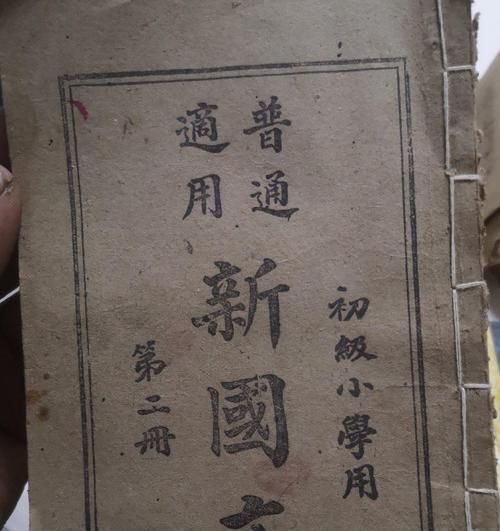 初級小學用
普通
適用
新國
第二冊